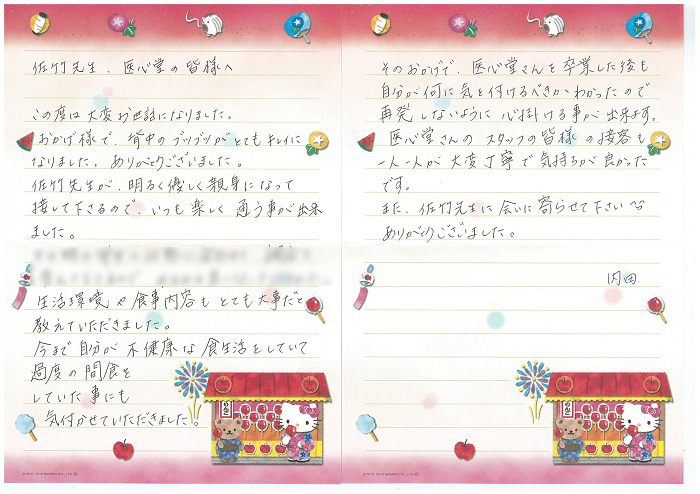 佐竹先生、医心堂の皆様へ
この度は大変お世話になりました。
おかげ様で、背中のブツブツがとてもキレイに
なりました。ありがとうございました。
佐竹先生が、明るく優しく親身になって
接して下さるので、いつも楽しく通う事が出来
ました。
生活環境や食事内容もとても大事だと
教えていただきました。
今まで自分が不健康な食生活をしていて
過度の間食を
していた事にも
気付かせていただきました。
りんご
そのおかげで、医心堂さんを卒業した後も
自分が何に気を付けるべきかわかったので
再発しないように心掛ける事が出来ます。
医心堂さんのスタッフの皆様の接客も
一人一人が大変丁寧で気持ちが良かった
です。
また、佐竹先生に会いに寄らせて下さい
ありがとうございました。
内田
りんご